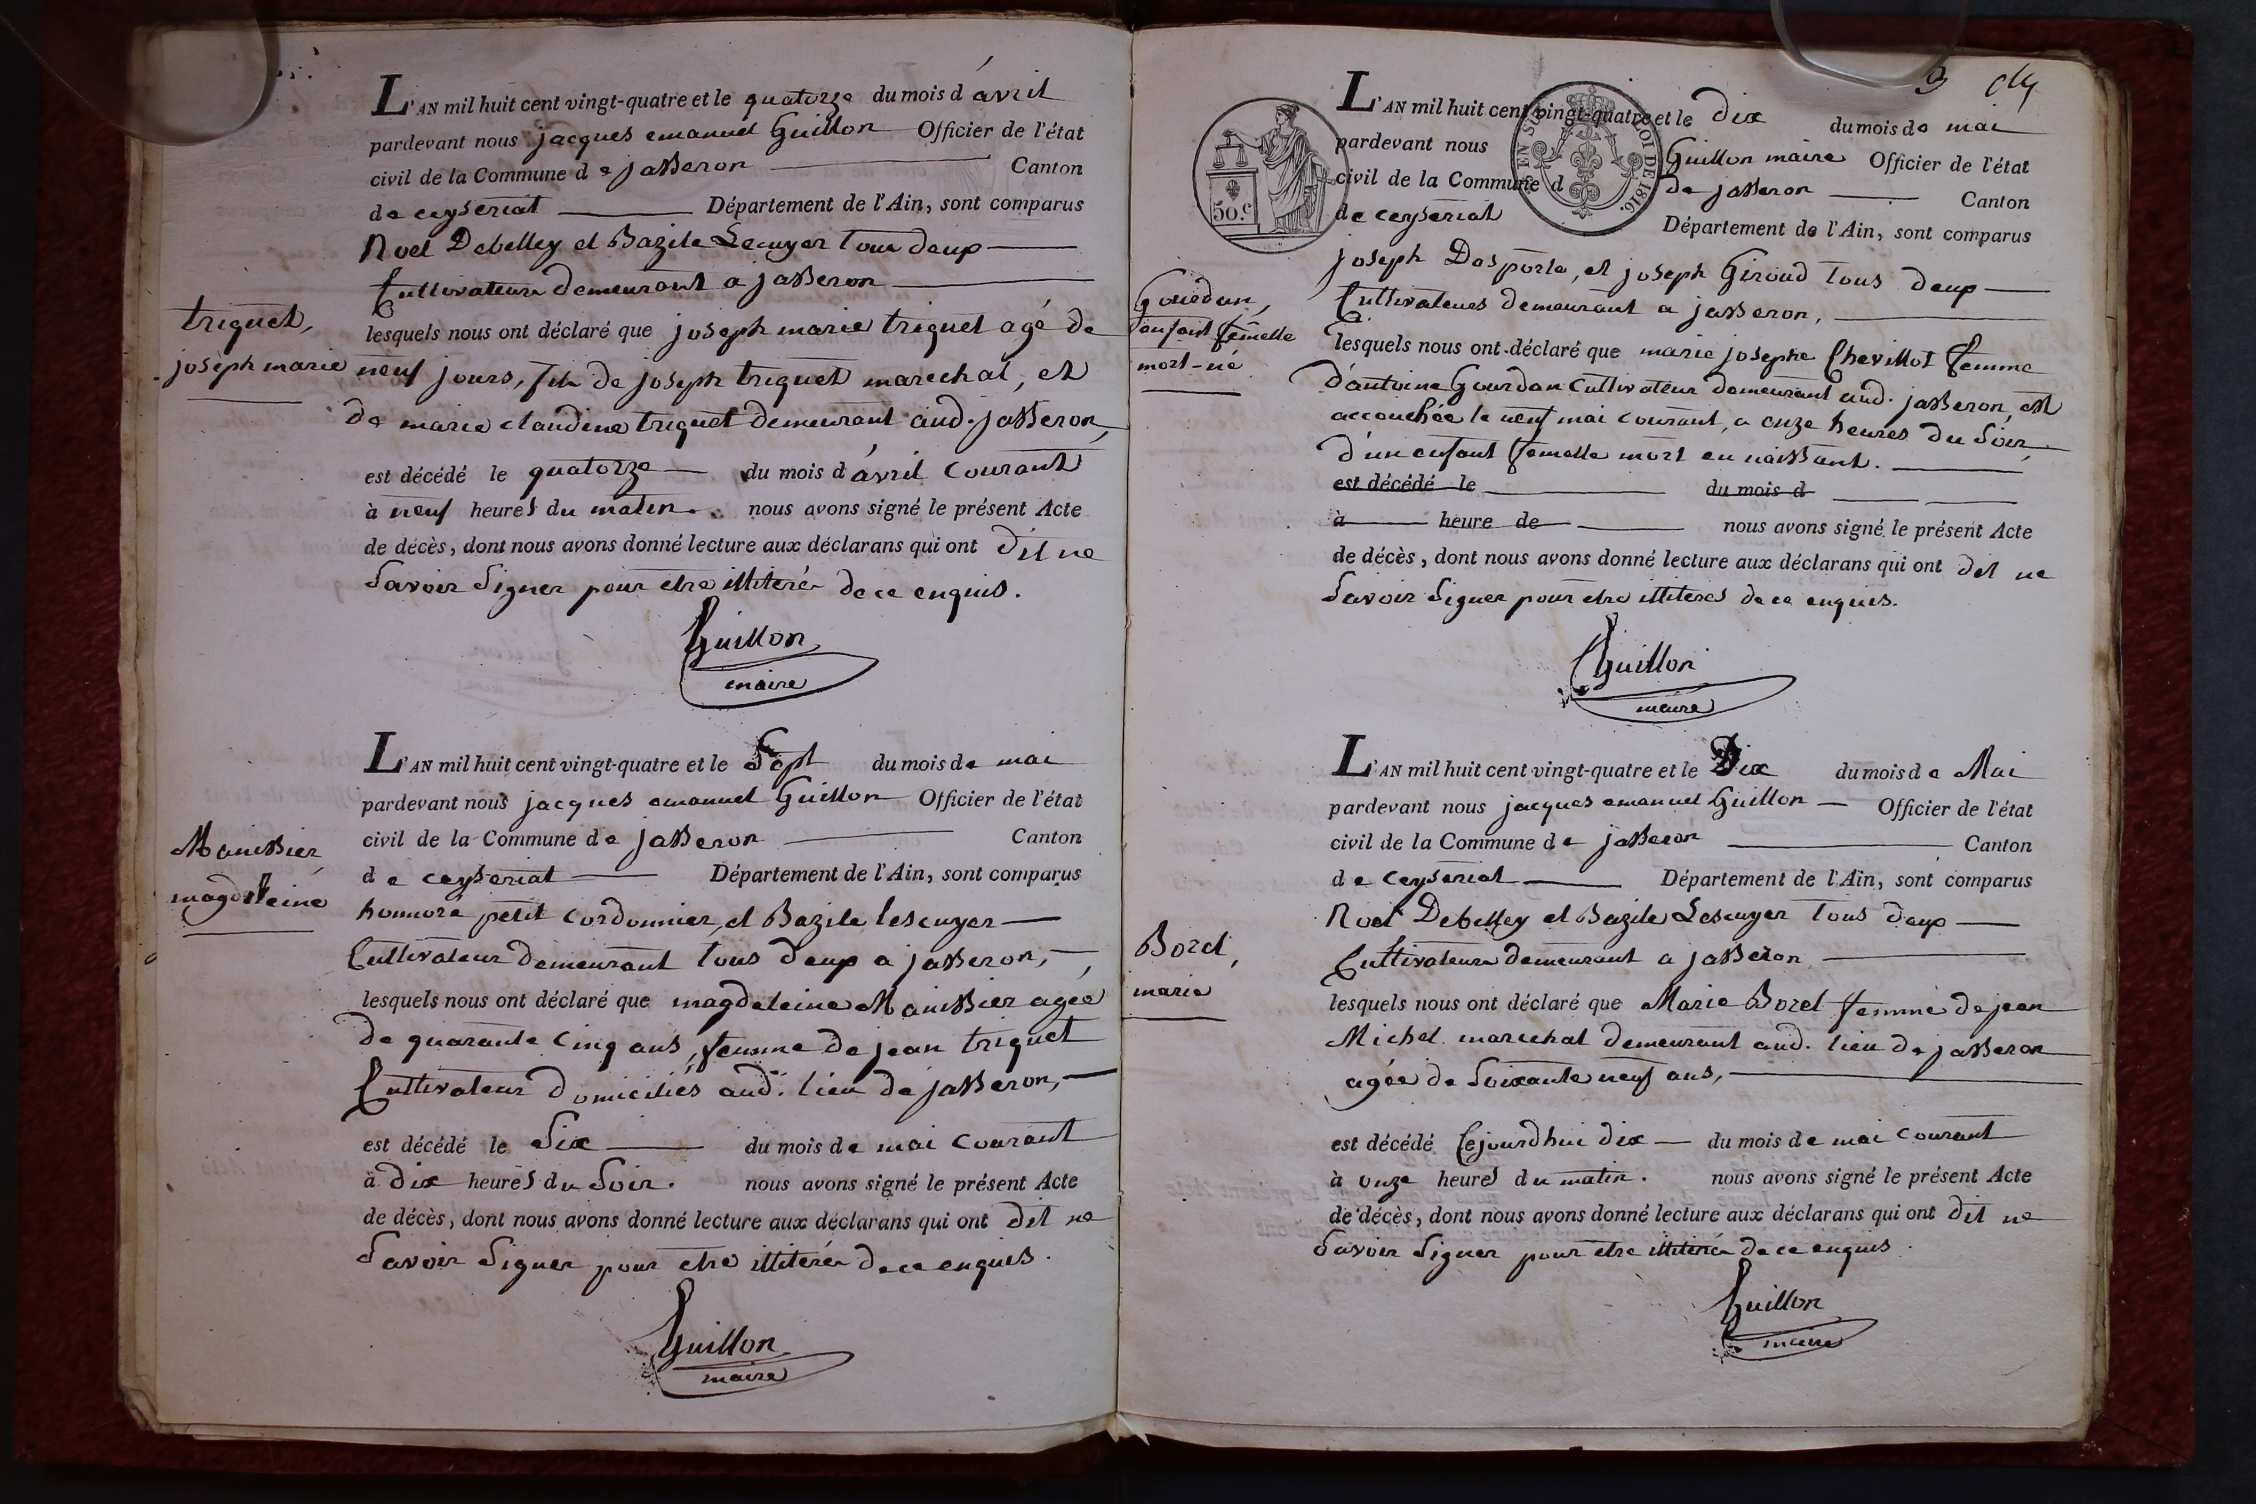 L'AN mil huit cent vingt-quatre et le quatorze du mois d'avril
pardevant nous jacques emanuel Guillon Officier de l'état
civil de la Commune de jasseron Canton
de ceyseriat Département de l'Ain, sont comparus
Noel Debelley et Bazile Lecuyer tous deux
Cultivateurs demeurant a jasseron
triquet,
joseph marie
lesquels nous ont déclaré que joseph marie triquet agé de
neuf jours, fils de joseph triquet marechal, et
de marie claudine triquet demeurant aud. jasseron,
est décédé le quatorze du mois d'avril courant
à neuf heures du matin. nous avons signé le présent Acte
de décès, dont nous avons donné lecture aux déclarans qui ont dit ne
Savoir Signer pour etre illiterés de ce enquis.
Guillon
maire
L'AN mil huit cent vingt-quatre et le Sept du mois de mai
pardevant nous jacques emanuel Guillon Officier de l'état
civil de la Commune de jasseron Canton
de ceyseriat Département de l'Ain, sont comparus
Manissier
magdeleine
honnoré petit cordonnier, et Bazile lescuyer
Cultivateur demeurant tous deux a jasseron,
lesquels nous ont déclaré que magdeleine Manissier agée
de quarante cinq ans, femme de jean triquet
Cultivateur domiciliés aud. lieu de jasseron,
est décédé le Six du mois de mai courant
à dix heures du Soir. nous avons signé le présent Acte
de décès, dont nous avons donné lecture aux déclarans qui ont dit ne
Savoir Signer pour etre illiterés de ce enquis.
Guillon
maire
9
L'AN mil huit cent vingt-quatre et le dix du mois de mai
pardevant nous Guillon maire Officier de l'état
civil de la Commune de jasseron Canton
de ceyseriat Département de l'Ain, sont comparus
50.c
EN SUS LOI DE 1816.
joseph Desporte, et joseph Giroud tous deux
Cultivateurs demeurant a jasseron,
Gourdan,
enfant femelle
mort-né
lesquels nous ont déclaré que marie josephe Chevillot femme
d'antoine Gourdan Cultivateur demeurant aud. jasseron, est
accouchée le neuf mai courant, a onze heures du Soir,
d'un enfant femelle mort en naissant.
est décédé le du mois d
à heure de nous avons signé le présent Acte
de décès, dont nous avons donné lecture aux déclarans qui ont dit ne
Savoir Signer pour etre illiterés de ce enquis.
Guillon
maire
L'AN mil huit cent vingt-quatre et le Dix du mois de Mai
pardevant nous jacques emanuel Guillon Officier de l'état
civil de la Commune de jasseron Canton
de ceyseriat Département de l'Ain, sont comparus
Noel Debelley et Bazile Lescuyer tous deux
Cultivateurs demeurant a jasseron
Borel,
marie
lesquels nous ont déclaré que Marie Borel femme de jean
Michel marechal demeurant aud. lieu de jasseron
agée de Soixante neuf ans,
est décédé Cejourdhui dix du mois de mai courant
à onze heures du matin. nous avons signé le présent Acte
de décès, dont nous avons donné lecture aux déclarans qui ont dit ne
Savoir Signer pour etre illiterés de ce enquis.
Guillon
maire